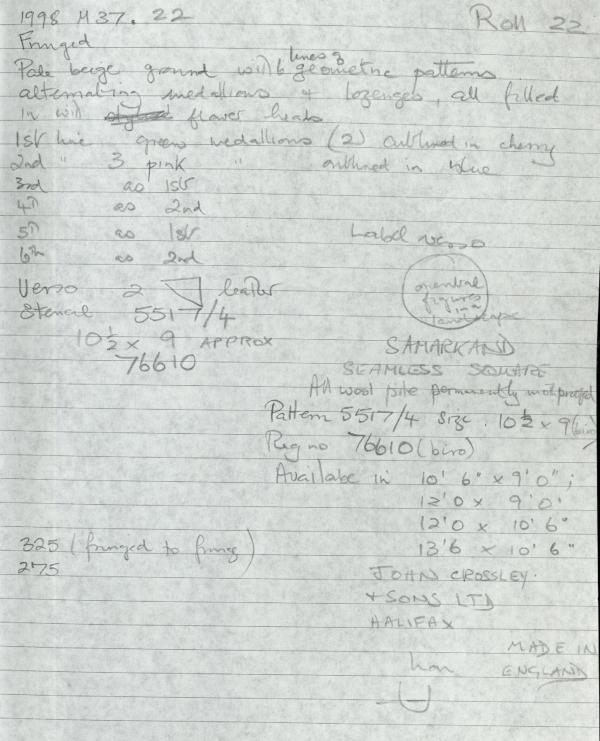 1998 M37. 22
Roll 22
Fringed
Pale beige ground with lines of geometric patterns
alternating medallions + lozenges, all filled
in with flower heads
1st line green medallions (2) outlined in cherry
2nd " 3 pink " outlined in blue
3rd as 1st
4th as 2nd
5th as 1st
6th as 2nd
Label verso
Verso 2 leather
Stencil 5517/4
10½ x 9 APPROX
76610
oriental
figures
in a
landscape
SAMARKAND
SEAMLESS SQUARE
All wool pile permanently mothproofed
Pattern 5517/4 Size. 10½ x 9 (biro)
Reg no 76610 (biro)
Available in 10' 6" x 9'0";
12'0 x 9'0'
12'0 x 10'6"
13'6 x 10'6"
325 (fringed to fring)
275
JOHN CROSSLEY.
+ SONS LTD
HALIFAX
MADE IN
ENGLAND